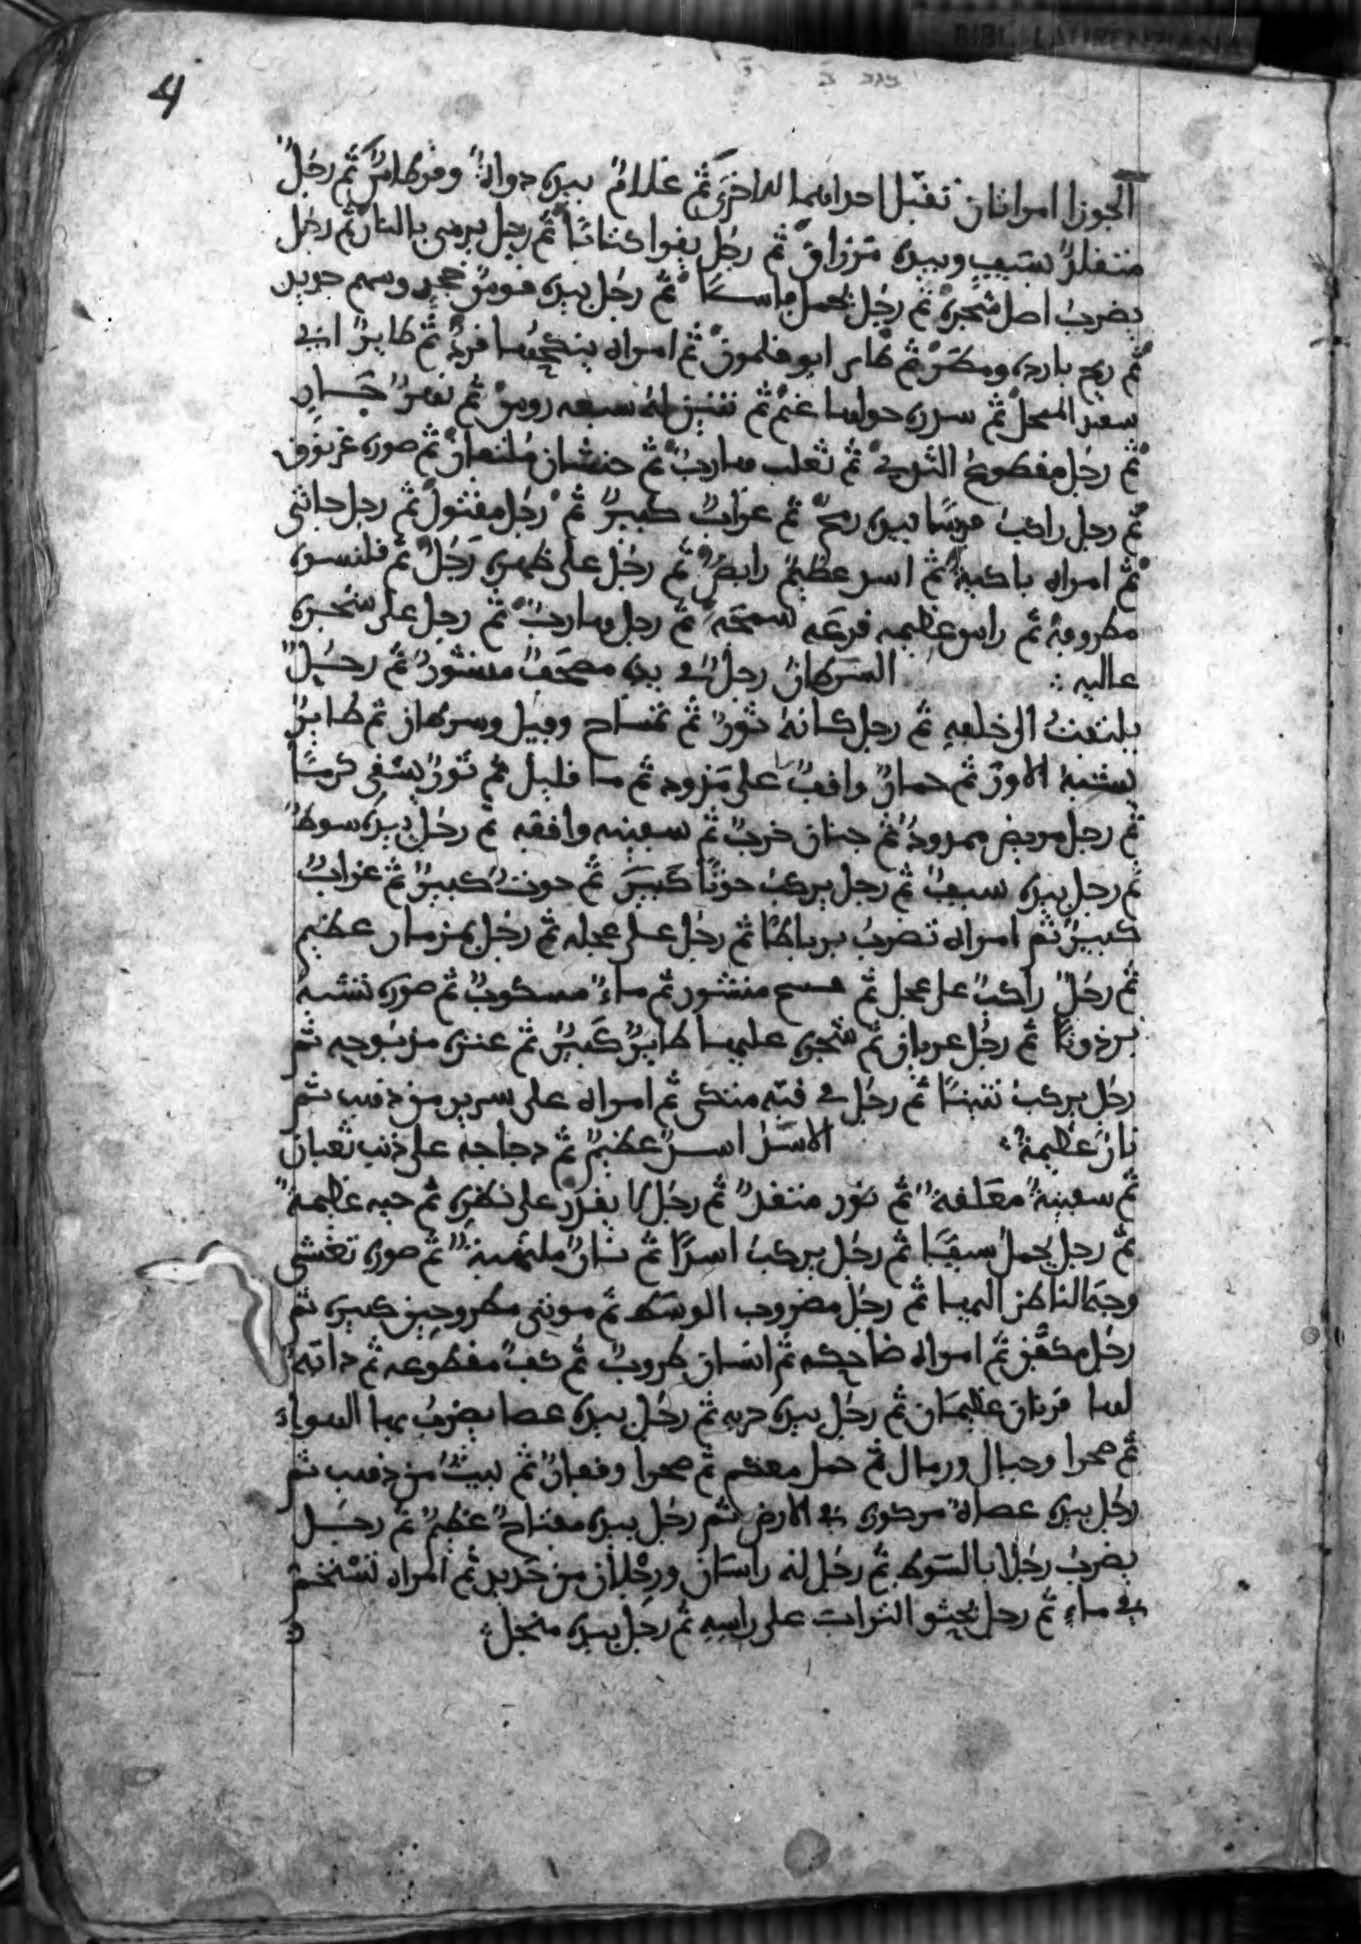 4
الجوزا امراتان تقبّل احداهما الاخرَى ثم غلامٌ بيده دواةٌ وقرطاسٌ ثم رجلٌ
متقلدٌ بسيف وبيده مزراقٌ ثم رجل يقرا كتابًا ثم رجل يرمى بالنار ثم رجل
يضربُ اصل شجرة ثم رجل يحمل فاسًا ثم رجل بيده قوسٌ وسهم حديد
ثم ريح بارده ومطرٌ ثم طاير ابو قلمون ثم امراه ينكحها قردٌ ثم طايرٌ
ثم سدره حولها غنم ثم تنين له سبعه روسٌ ثم
ثم رجل مقطوعُ ثم ثعلب هاربٌ ثم حنشان ملتفان ثم صوره غرنوق
ثم رجل راكبٌ فرسًا بيده رمحٌ ثم غرابٌ كبيرٌ ثم رجل مقتولٌ ثم رجل جاثى
ثم امراه باكيةٌ ثم اسد عظيمٌ رابضٌ ثم رجل على ظهره رَجُلٌ ثم قلنسوه
مطروفةٌ ثم راس عظيمه قرعه سمجَه ثم رجل هاربٌ ثم رجل على شجره
عاليه ∴ السرطان رجلٌ فى يده مصحفٌ منشورٌ ثم رجلٌ
يلتفتُ الى خلفهِ ثم رجل كانهُ ثورٌ ثم تمساح وفيل وسرطان ثم طايرٌ
يشبهُ الاوز ثم حمارٌ واقفٌ على مزود ثم ما قليل ثم ثورٌ يسقى كرمًا
ثم رجل مريض ممدودٌ ثم جنان خربٌ ثم سفينه واقفه ثم رجل بيده سوطٌ
ثم رجل بيده سيفٌ ثم رجل يركبُ حوتًا كَبيرَ ثم حوتٌ كبيرٌ ثم غرابٌ
كبيرٌ ثم امراه تضربُ برباطًا ثم رجل على عجله ثم رجل بمزمار عظيم
ثم رجلٌ راكبٌ على عجل ثم مسح منشور ثم ماءٌ مسكوبٌ ثم صوره تشبه
برذونًا ثم رجل عريان ثم شجره عليها طايرٌ كَبيرٌ ثم عنزه مربوحه ثم
رجل يركبُ تنينًا ثم رجل فى قبّه متكى ثم امراه على سرير من ذهب ثم
نارٌ عظيمةٌ ∴ الاسَدُ اسدٌ عظيمٌ ثم دجاجه على ذنب ثعبان
ثم سفينةٌ معَلقةٌ ثم ثور متقلدٌ ثم رجل لا يقدر على نظره ثم حيه عظيمةٌ
ثم رجل يحمل سيفًا ثم رجل يركبُ اسدًا ثم نارٌ ملتهبةٌ ثم صوره تغشى
وجهَ الناظر اليها ثم رجل مضروب الوسَط ثم موتى مطروحين كثيره ثم
رجل مكفّن ثم امراه ضاحكه ثم انسان طروبٌ ثم كفٌ مقطوعه ثم دابّةٌ
لها قرنان عظيمَان ثم رجل بيده حربه ثم رجل بيده عصا يضربُ بها الهواءَ
ثم صحرا وجبال ورمال ثم جمل ثم صحرا وقفارٌ ثم بيتٌ من ذهب ثم
رجل بيده عصاةٌ مركوزه فى الارض ثم رجل بيده مفتاحٌ عظيمٌ ثم رجل
يضربُ رجُلا بالسَوط ثم رجل لَه راسَان ورجلان من حَديد ثم امراه تستحم
فى ماءٍ ثم رجل يحثو الترابَ على راسِهِ ثم رجل بيده منجل ∴